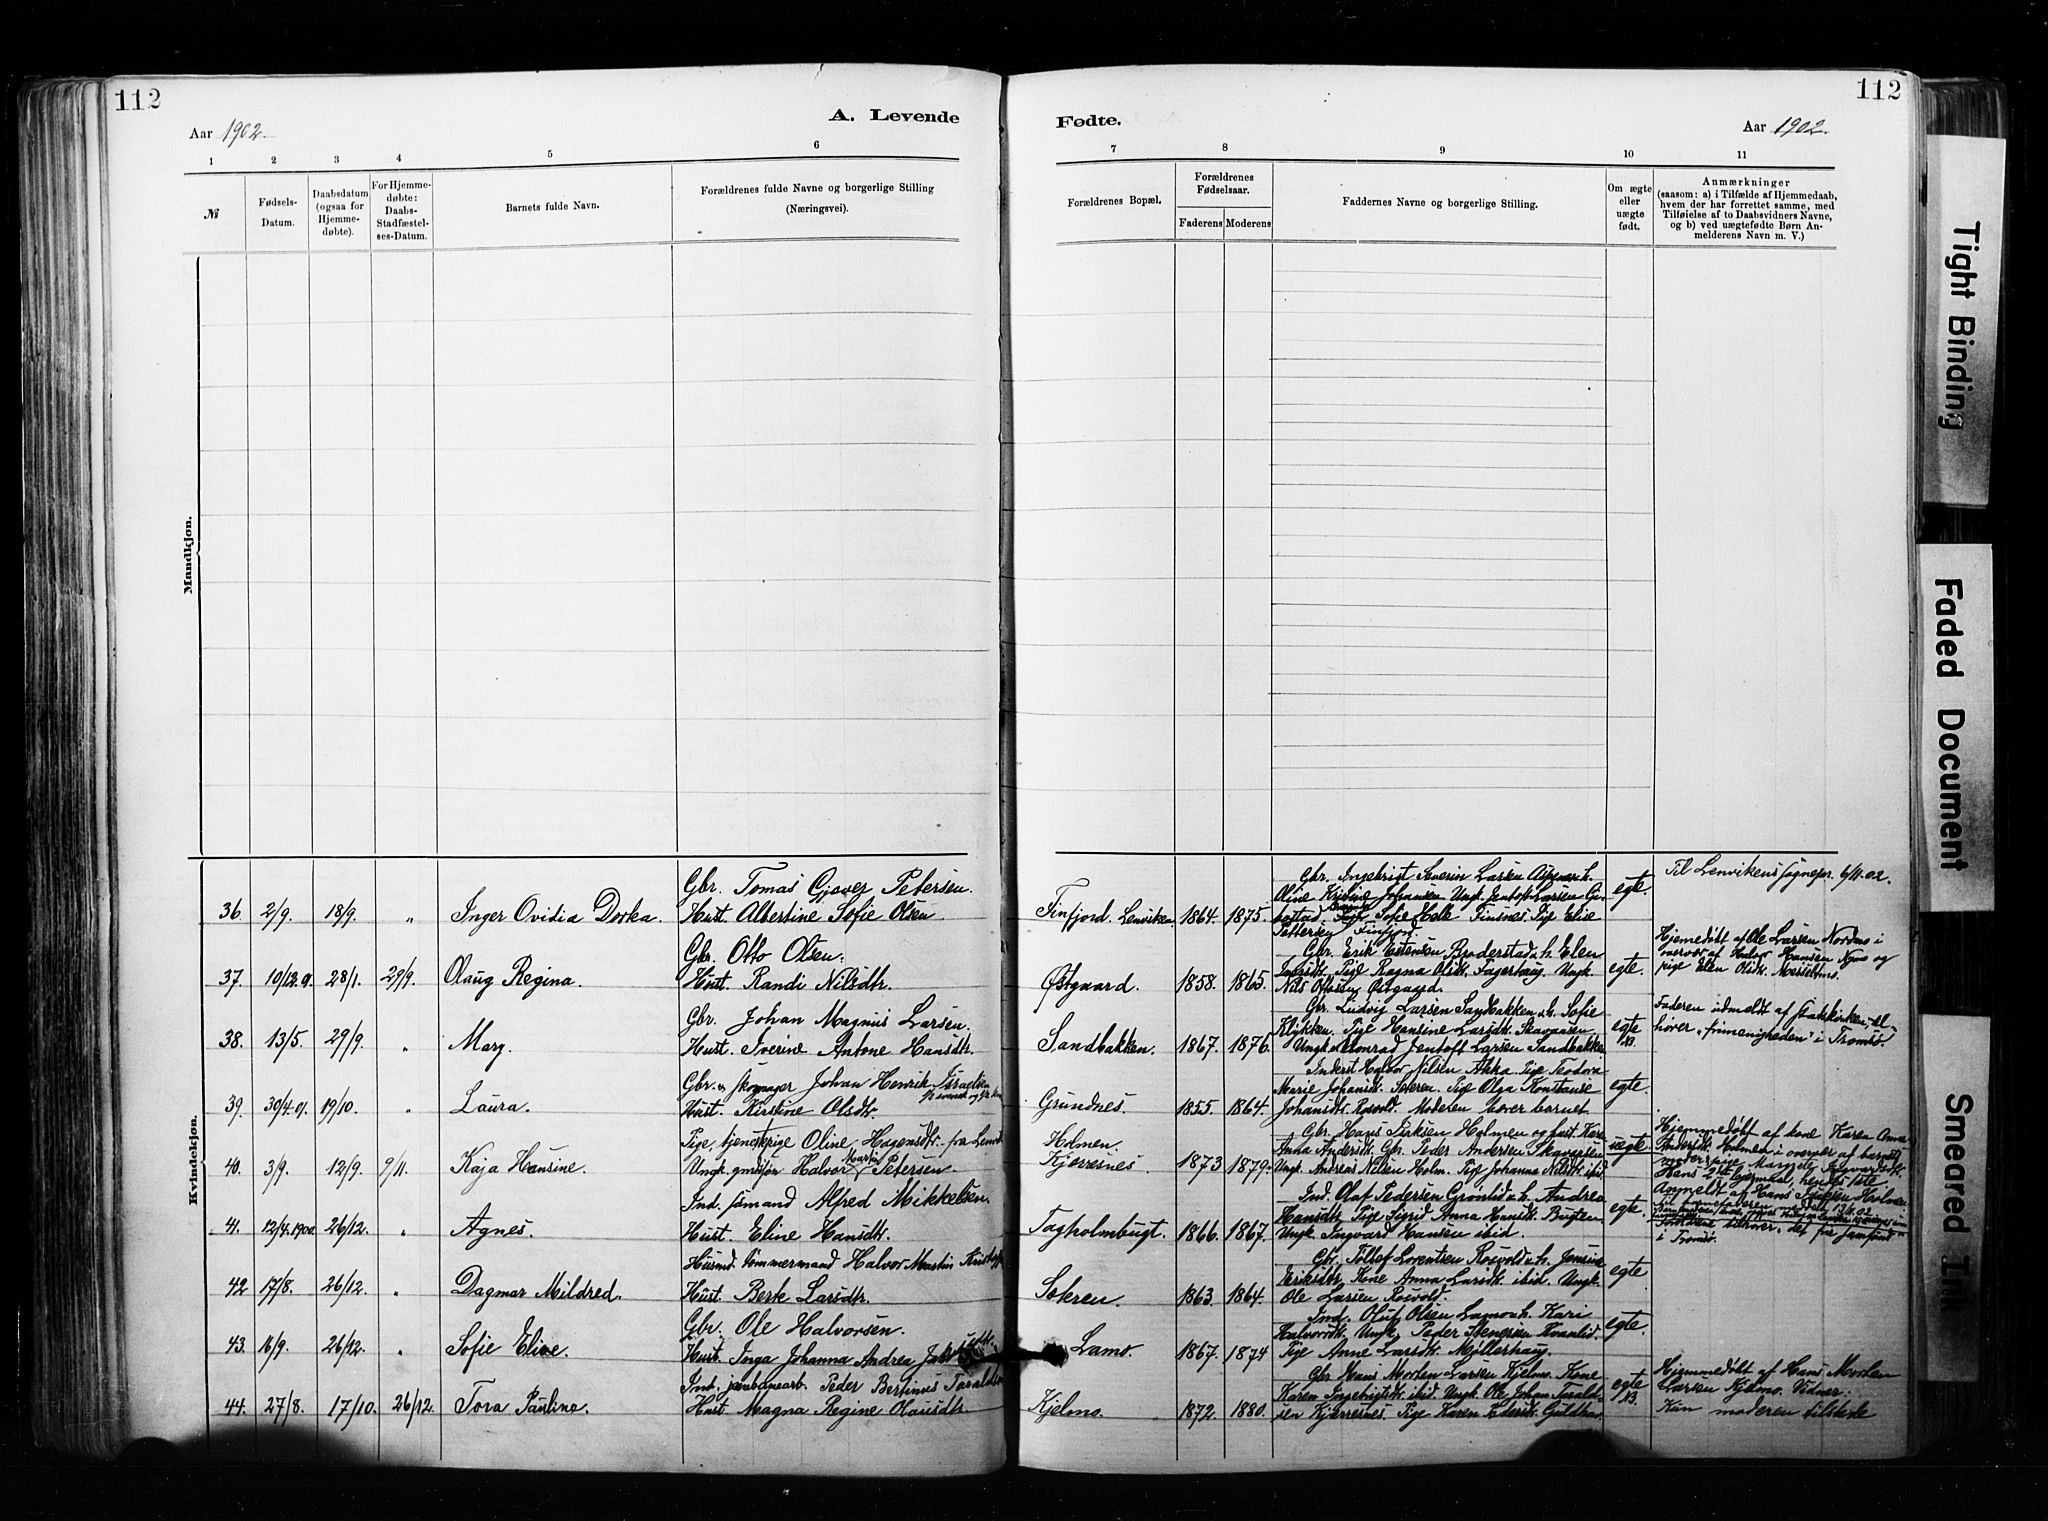 112
Aar 1902.
A. Levende
Fødte.
Aar 1902.
112
1 2 3 4 5 6
7 8 9 10 11
№
Fødsels-
Datum.
Daabsdatum
(ogsaa for
Hjemme-
døbte).
For Hjemme-
døbte:
Daabs-
Stadfæstel-
ses-Datum.
Barnets fulde Navn.
Forældrenes fulde Navne og borgerlige Stilling
(Næringsvei).
Forældrenes Bopæl.
Forældrenes
Fødselsaar.
Faderens Moderens
Faddernes Navne og borgerlige Stilling.
Om ægte
eller
uægte
født.
Anmærkninger
(saasom: a) i Tilfælde af Hjemmedaab,
hvem der har forrettet samme, med
Tilføielse af to Daabsvidners Navne,
og b) ved uægtefødte Børn An-
melderens Navn m. V.)
Mandkjøn.
Kvindekjøn.
36. 2/9. 18/9. " Inger Ovidia Dorka.
Gbr. Tomas Gjæver Petersen.
Hust. Albertine Sofie Olsen.
Finfjord, Lenviken 1864. 1875.
Gbr. Ingebrigt Severin Larsen
Oline Kristine Johansen Ungk. Jentoft Larsen Gi-
bostad Sofie Helk Finsnes. Pige Elise
Finfjord.
egte.
Til Lenvikens sognepr. 6/11.02.
37. 10/12.01. 28/1. 29/9. Olaug Regina.
Gbr. Otto Olsen.
Hust. Randi Nilsdtr.
Østgaard. 1858. 1865.
Gbr. Erik Estensen Brøderstad o.h. Elen
Larsdtr. Pige Ragna Olsdtr. Fagerhaug. Ungk.
Nils Ottosen Østgaard.
egte.
Hjemedøbt af Ole Larsen Nordmo i
overvær af Halvor Hansen Nymo og
pige Elen Olsdtr.
38. 13/5. 29/9. " Mary.
Gbr. Johan Magnus Larsen.
Hust. Iverine Antone Hansdtr.
Sandbakken. 1867. 1876.
Gbr. Ludvig Larsen Sandbakken o.h. Sofie
Klykken. Pige Hansine Larsdtr.
Ungk. Konrad Jentoft Larsen Sandbakken
egte
NB.
Faderen udmeldt af Statskirken, til-
hører „frimenigheden" i Tromsø.
39. 30/4.01. 19/10. " Laura.
Gbr. & skomager Johan Henrik Israelsen
Hust. Kirstine Olsdtr.
Grundnes. 1855. 1864.
Inderst Halvor Nilsen Akka. Pige Teodora
Marie Johansdtr. Sokren. Pige Olga Konstanse
Johansdtr. Rosvold. Moderen bærer barnet
egte.
40. 3/9. 12/9. 9/11. Kaja Hansine.
Pige, tjenestepige Oline Hagensdtr. fra Lenvik
Ungk. Halvor Martin Petersen.
Holmen
Kjerresnes. 1873 1879.
Gbr. Hans Isaksen Holmen og hust. Karen
Anna Andersdtr. Gbr. Peder Andersen
Ungk. Andreas Nilsen Holm. Pige Johanna Nilsdtr. ibid.
uegte.
Hjemmedøbt af kone Karen Anna
Andersdtr. Holmen i overvær af barnets
moder & pige
Hans 2det leiermaal, hendes 1ste
Anmeldt af Hans Isaksen Holmen
41. 12/4.1900. 26/12. " Agnes.
Ind. sømand Alfred Mikkelsen
Hust. Eline Hansdtr.
Tagholmbugt. 1866. 1867.
Ind. Olaf Pedersen Grønlid o.h. Andrea
Hansdtr. Pige Sigrid Anna Hansdtr. Bugten.
Ungk. Ingvard Hansen ibid.
egte.
Forældrene tilhører „det fri samfund"
i Tromsø.
42 17/8. 26/12. " Dagmar Mildred.
Husmd. tømmermand Halvor Martin
Hust. Berte Larsdtr.
Sokren. 1863. 1864.
Gbr. Tollef Lorentsen Rosvold o.h. Jensine
Eriksdtr. Kone Anna Larsdtr. ibid. Ungk.
Ole Larsen Rosvold.
egte
43. 16/9. 26/12. " Sofie Eline.
Gbr. Ole Halvorsen.
Hust. Inga Johanna Andrea
Lamo. 1867. 1874
Ind. Oluf Olsen Lamo o.h. Kari
Halvorsdtr. Ungk. Peder Stenersen Kvanlid.
Pige Anne Larsdtr. Møllerhaug.
egte.
44. 27/8. 17/10. 26/12. Tora Pauline.
Ind. jernbanearb. Peder Bertinus Toraldsen
Hust. Magna Regine Olausdtr.
Kjelmo. 1872. 1880.
Gbr. Hans Morten Larsen Kjelmo. Kone
Karen Ingebrigtsdtr. ibid. Ungk. Ole Johan Torald-
sen Kjerresnes. Pige Karen Pedersdtr. Guldhav
egte
NB.
Hjemmedøbt af Hans Morten
Larsen Kjelmo. Vidner:
Kun moderen tilstede
Tight Binding
Faded Document
Smeared Ink